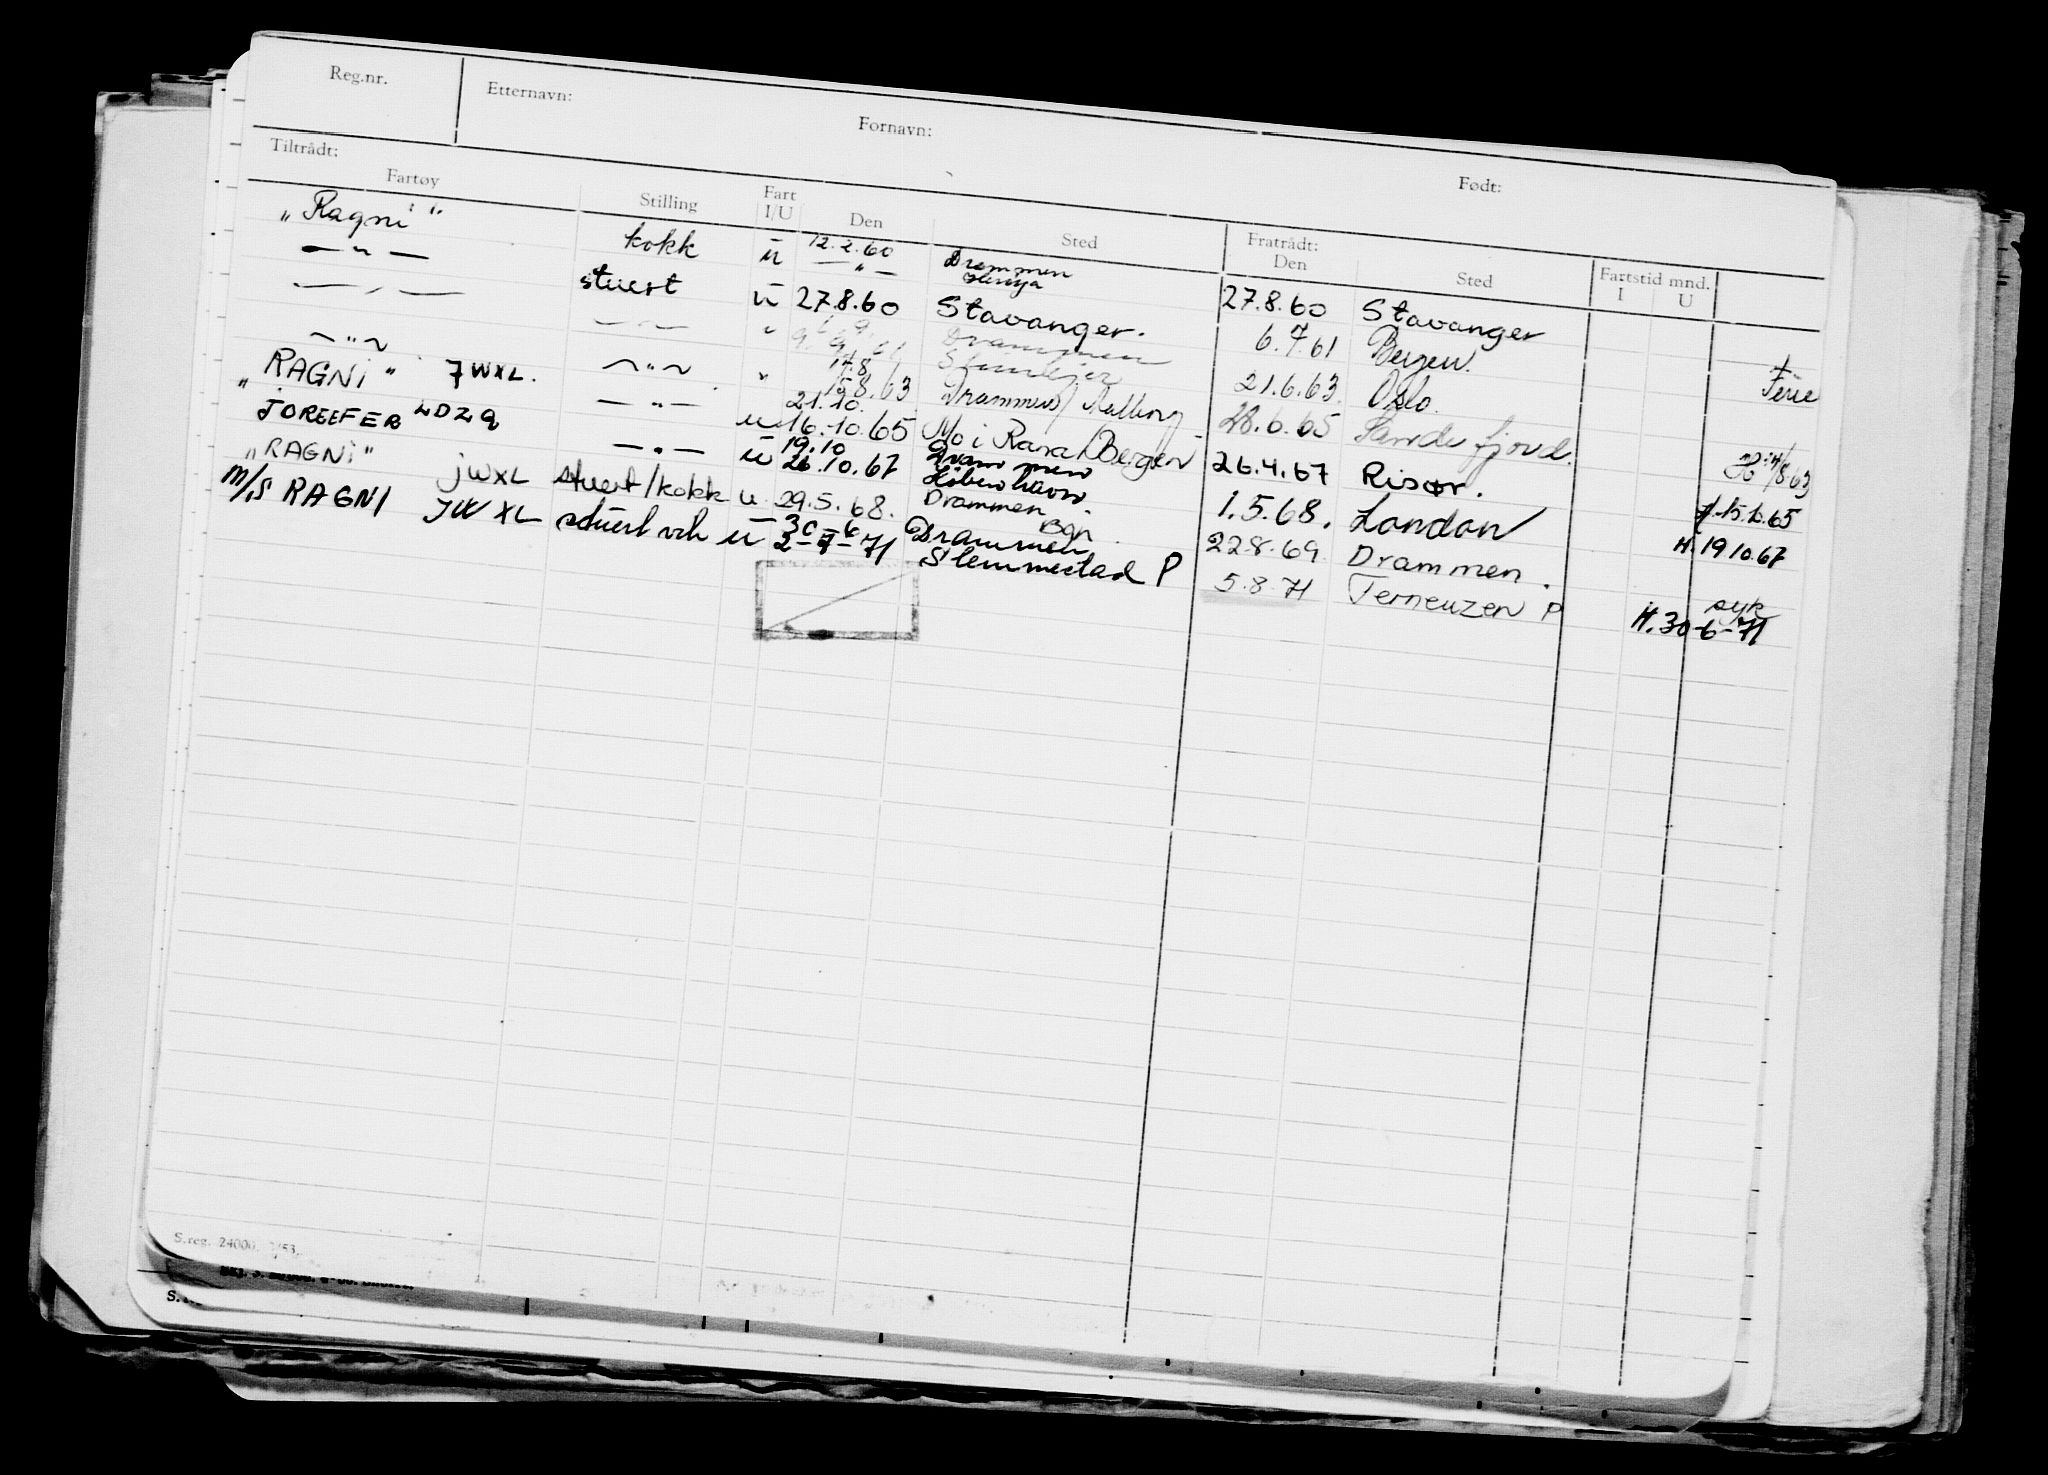 Reg.nr. Etternavn: Fornavn: Født:
Tiltrådt: Fratrådt:
Fartøy Stilling Fart I/U Den Sted Den Sted Fartstid mnd. I U
"Ragni" kokk u 12.2.60 Drammen 27.8.60 Stavanger
—"— stuert u 27.8.60 Stavanger. 6.7.61 Bergen. Ferie
—"— —"— " Drammen 21.6.63. Oslo.
—"— —"— " 14.8 15.8.63 Drammen/Aalborg 28.6.65 Sandefjord. 14/8 63
"RAGNI" JWXL. —"— u 21.10. 16.10.65 Mo i Rana/Bergen 26.4.67 Risør. 15.10.65
JOREEFER LDZQ —"— u 19.10 26.10.67 Drammen København. 1.5.68. London H. 19 10.67
"RAGNI" JWXL stuert/kokk u 29.5.68. Drammen Bgn. 22.8.69. Drammen. syk
M/S RAGNI JWXL stuert u 30-6 2-7-71 Drammen Slemmestad P 5.8.71 Terneuzen P H. 30-6-71
S.reg. 24000. /53.